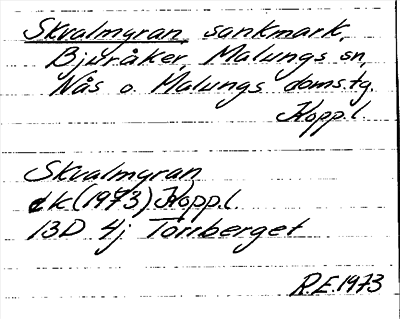 Skvalmgran, sankmark,
Bjuråker, Malungs sn,
Nås o. Malungs doms.tg.
Kopp.l.
Skvalmgran
ek (1973) Kopp.l
13D 4j Tornberget
R.E.1973